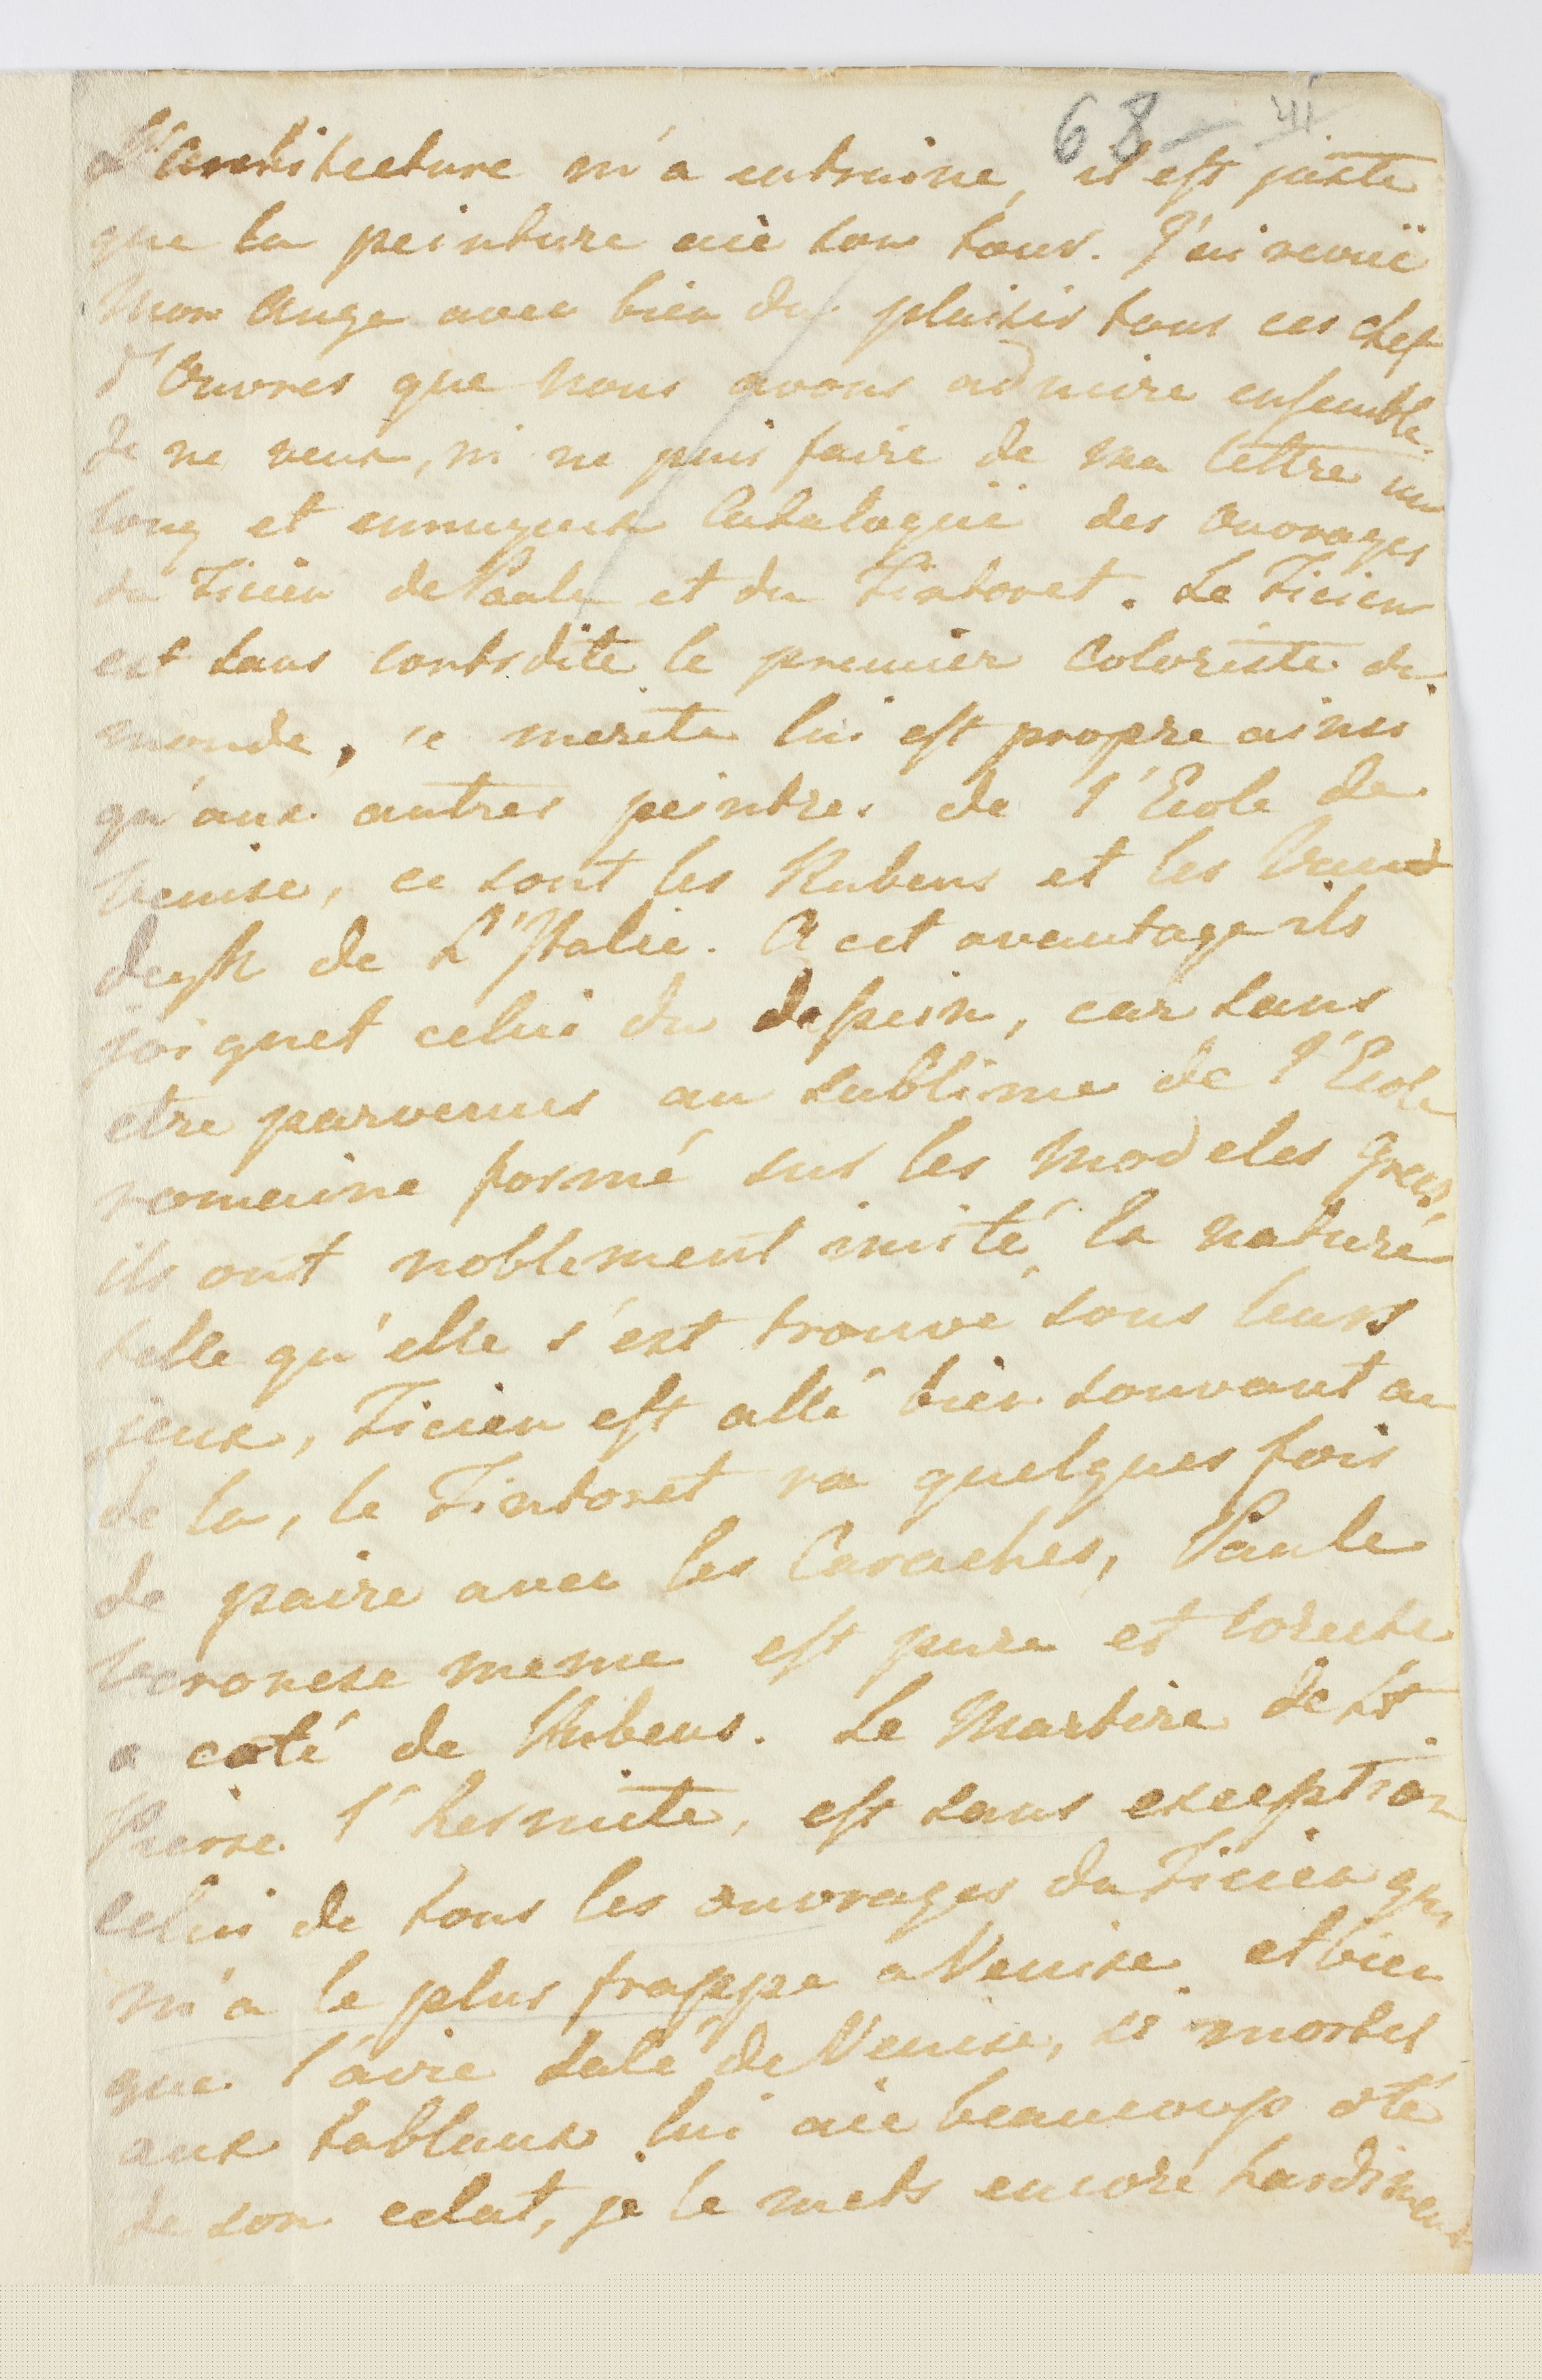 68
L'architecture m'a entraine, il est juste
que la peinture aie son tour. J'ai revuë
Mon Ange avec bien du plaisir tous ces chef
d'Œuvres que nous avons admire ensemble.
Je ne veux, ni ne puis faire de ma lettre un
long et ennuyeux Cataloguë des ouvrages
du Ticien de Paule et du Tintoret. Le Ticien
est sans contrdite le premier coloriste du
monde, ce merite lui est propre ainsi
qu'aux autres peintres de l'Ecole de
Venise, ce sont les Rubens et les Vand
deyk de L'Italie. A cet avantage ils
joignet celui du dessein, car sans
etre parvenus au sublime de l'Ecole
romaine formé sur les modeles Grecs,
ils ont noblement imité la nature
telle qu'elle s'est trouve sous leurs
jeux, Ticien est allé bien souvant au
de la, le Tintoret va quelques fois
de paire avec les Caraches, Paule
Veronese meme est pure et corecte
a coté de Rubens. Le Martire de St.
Pierre l'hermite, est sans exception
celui de tous les ouvrages du Ticien qui
m'a le plus frappe a Venise et bien
que l'aire salé de Venise, si mortel
aux tablaux lui aie beaucoup oté
de son eclat, je le mets encore hardiment